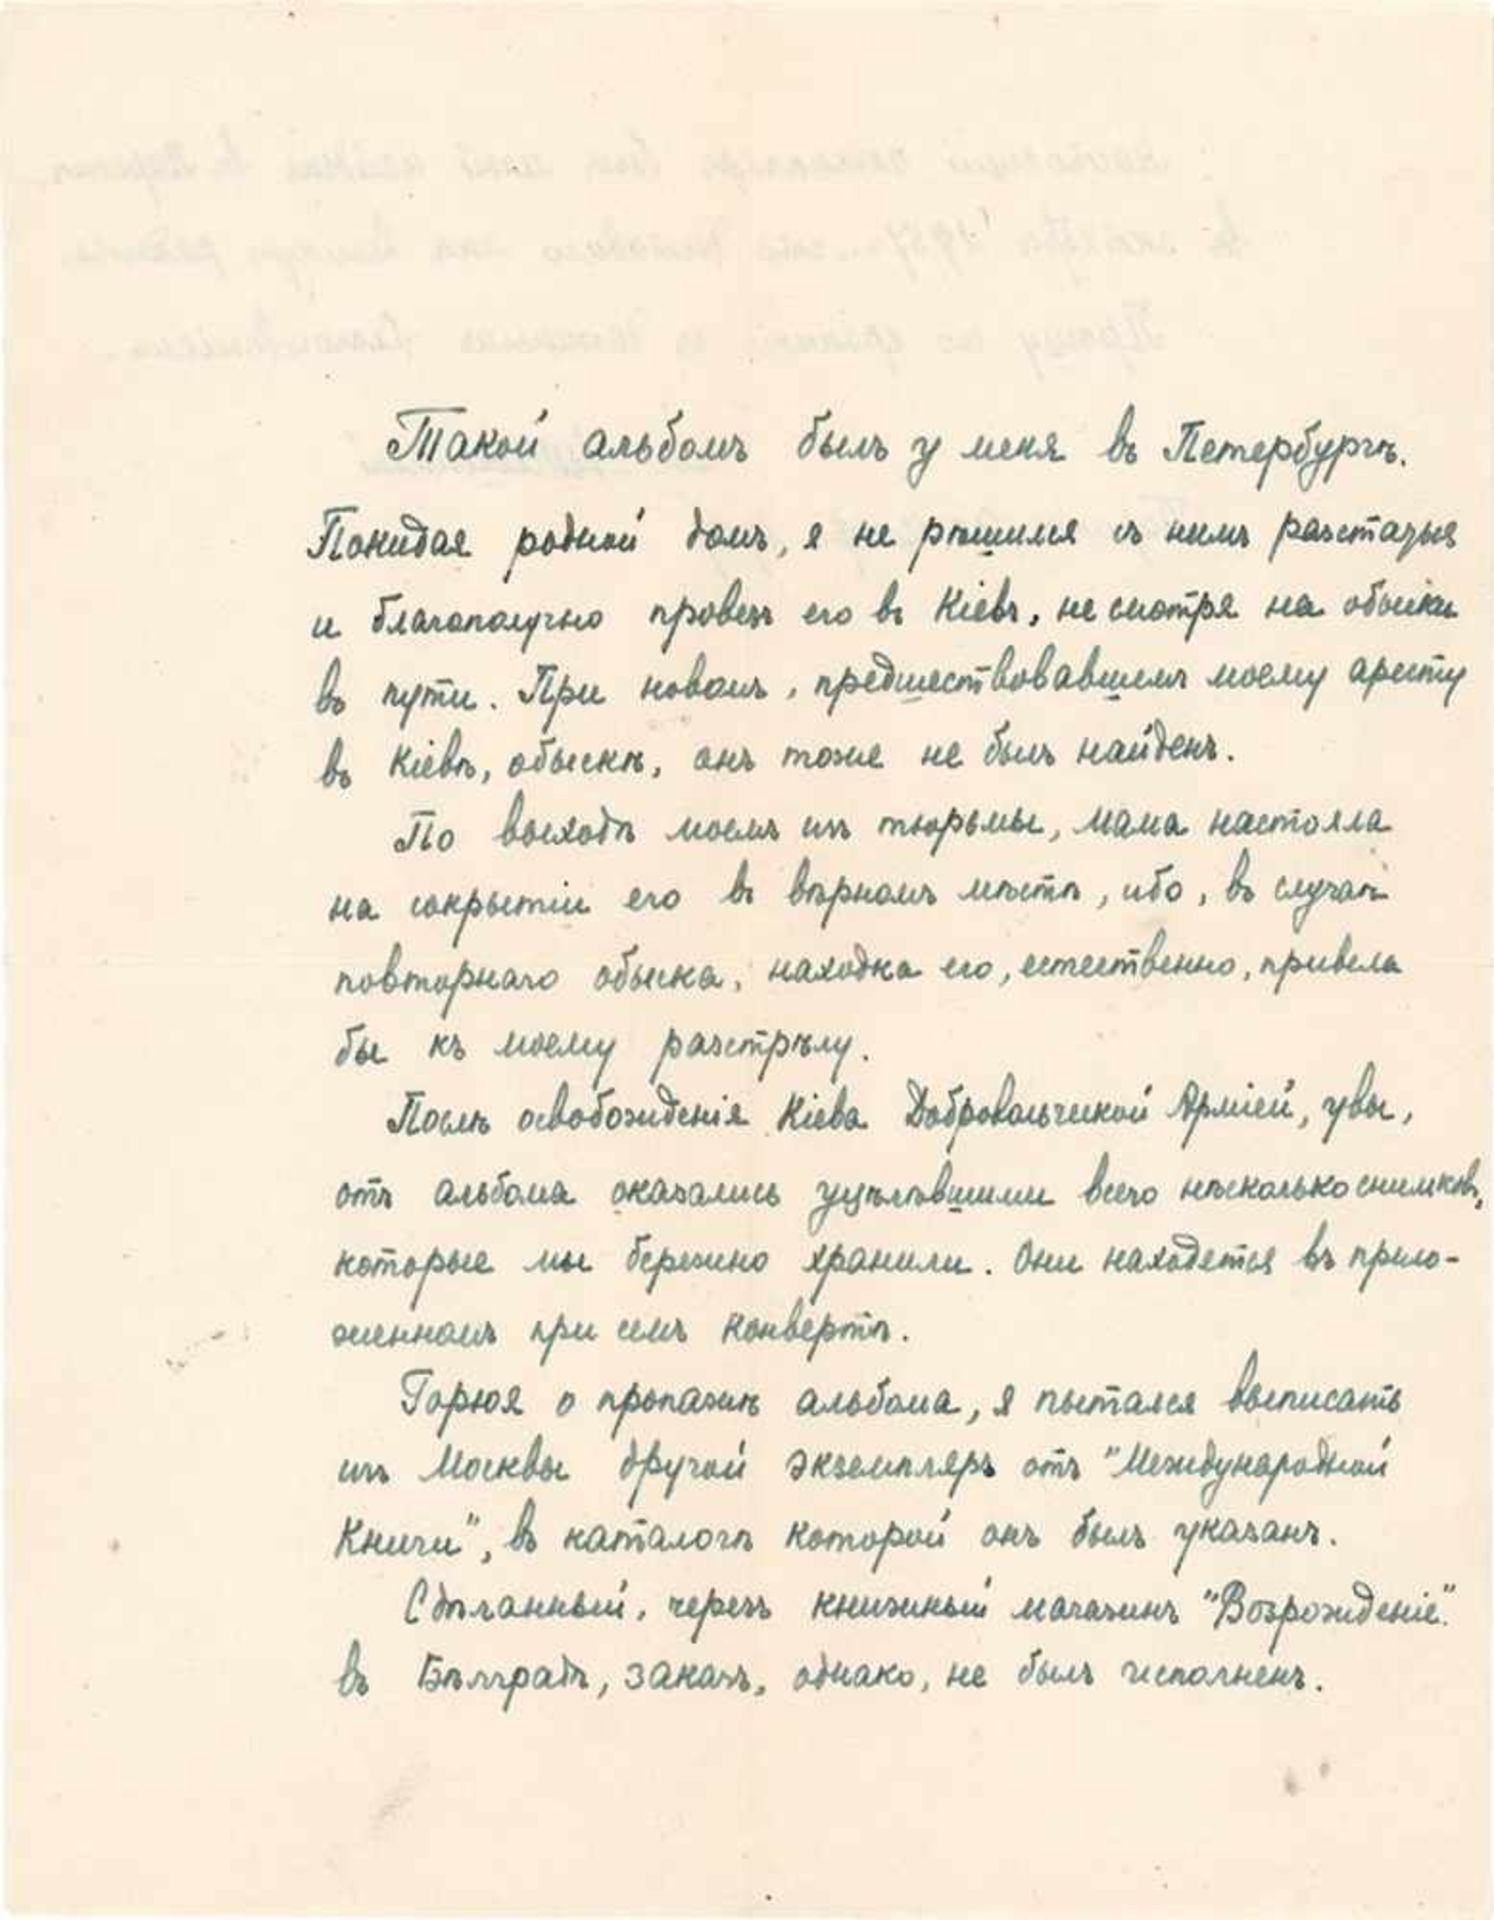 Такой альбомъ былъ у меня въ Петербургѣ.
Покидая родной домъ, я не рѣшился съ нимъ разстаться
и благополучно провезъ его въ Кіевъ, не смотря на обыски
въ пути. При новомъ, предшествовавшемъ моему аресту
въ Кіевѣ, обыскѣ, онъ тоже не былъ найденъ.
По выходѣ моемъ изъ тюрьмы, мама настояла
на сокрытіи его въ вѣрномъ мѣстѣ, ибо, въ случаѣ
повторнаго обыска, находка его, естественно, привела
бы къ моему разстрѣлу.
Послѣ освобожденія Кіева Добровольческой Арміей, увы,
отъ альбома оказались уцѣлѣвшими всего нѣсколько снимковъ,
которые мы бережно хранили. Они находятся въ прило-
женномъ при семъ конвертѣ.
Горюя о пропажѣ альбома, я пытался выписать
изъ Москвы другой экземпляръ отъ "Международной
Книги", въ каталогѣ которой онъ былъ указанъ.
Сдѣланный, черезъ книжный магазинъ "Возрожденіе"
въ Бѣлградѣ, заказъ, однако, не былъ исполненъ.